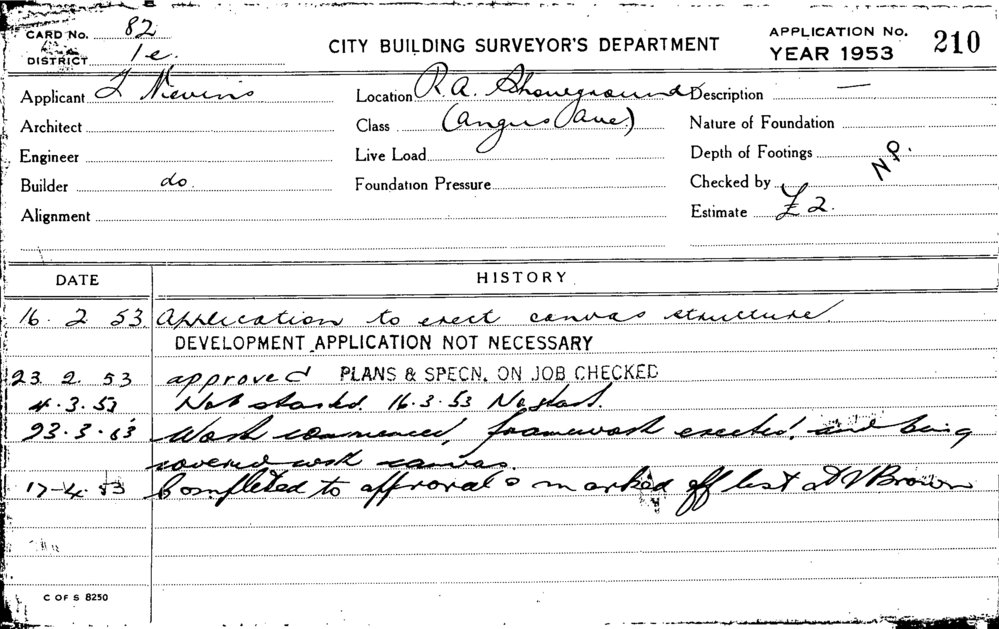 CARD No. 82
DISTRICT 1e.
CITY BUILDING SURVEYOR'S DEPARTMENT
APPLICATION No.
YEAR 1953
210
Applicant L Nevins
Location R.A. Showground
Description —
Architect
Class (Angus Ave.)
Nature of Foundation
Engineer
Live Load
Depth of Footings
N.P.
Builder do.
Foundation Pressure
Checked by
Alignment
Estimate £2.
DATE
HISTORY
16. 2 53 Application to erect canvas structure.
DEVELOPMENT APPLICATION NOT NECESSARY
23. 2. 53 approved PLANS & SPECN. ON JOB CHECKED
4.3.53 Not started. 16.3.53 No start.
23.3.53 Work commenced, framework erected, and being
covered with canvas.
17-4.53 Completed to approval & marked off list DVBrown
C OF S 8250